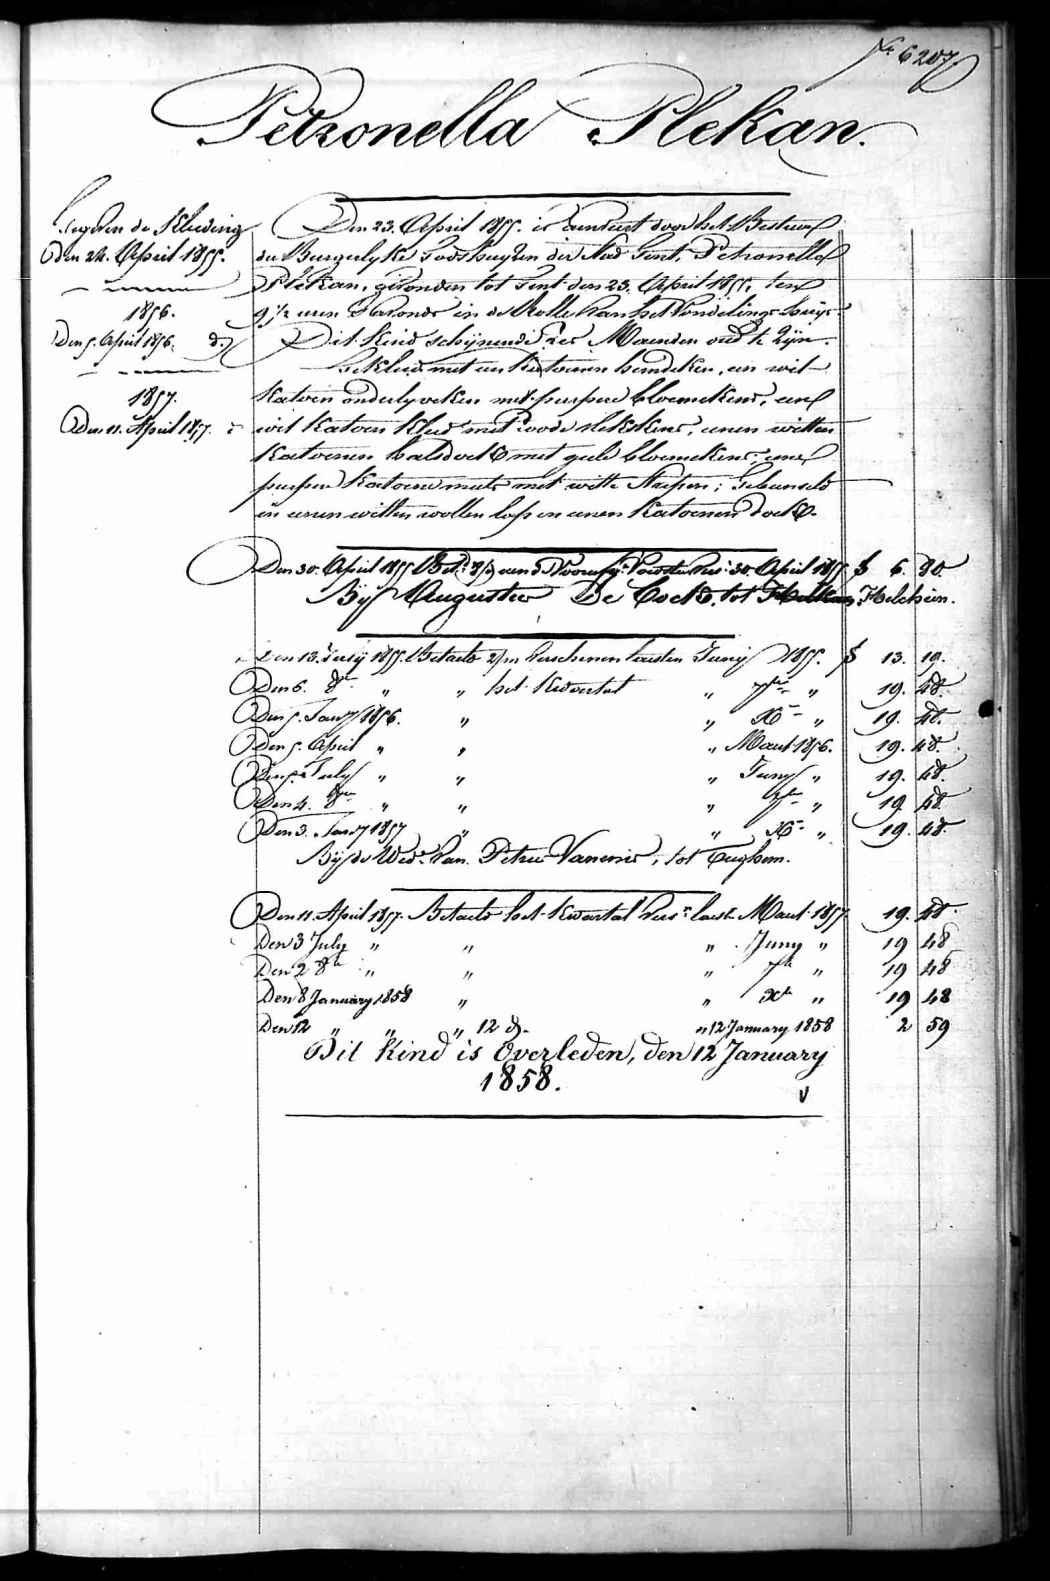 N.º 6207.
Petronella Plekan.
Gegeven de Kleeding
Den 24. April 1855.
1856.
Den 5. April 1856. d.º
1857.
Den 11. April 1857.
Den 23. April 1855. is aenveert door het Bestuur
der Burgerlyke Godshuyzen der Stad Gent, Petronella
Plekan, gevonden tot Gent den 23. April 1855, ten
9 1/2 uren 's avonds in de Rolle van het Vondelingshuys
Dit Kind schijnende zes Maenden oud te zijn.
Gekleed met een Katoenen hemdeken, een wit
Katoen onderlyveken met purpere bloemekens, een
wit Katoen Kleed met roode stekskens, eenen witten
Katoenen halsdoek met gele bloemekens, eene
purpere Katoene muts met witte streepen; Gebunseld
in eenen witten wollen lap en eenen Katoenen doek.
Den 30. April 1855 Bet.d aen de Voorsch. Voedster 30. April 1855 f 6. 80.
Bij Augustus De Cock, tot Helchin.
Den 13. July 1855. Betaeld 2/m verschenen lesten Juny 1855. f 13. 19.
Den 6. 8bre „ „ het Kwartal „ 7bre „ 19. 48.
Den 5. Jany 1856. „ „ Xb „ 19. 48.
Den 5. April „ „ „ Maert 1856. 19. 48.
Den July „ „ „ Juny „ 19. 48.
Den 4. 8bre „ „ „ 7bre „ 19 48.
Den 3. Jany 1857 „ „ Xb „ 19. 48.
Bij de Wed.e van Petrus , tot
Den 11. April 1857. Betaeld het Kwartal vers. laest Maert 1857. 19. 48.
Den 3 July „ „ „ Juny „ 19 48
Den 2 8b „ „ „ 7b „ 19 48
Den 8 January 1858 „ „ Xb „ 19 48
Den 12 „ „ „ 12 d. „ 12 January 1858 2 59
Dit Kind is Overleden, den 12 January
1858.
V